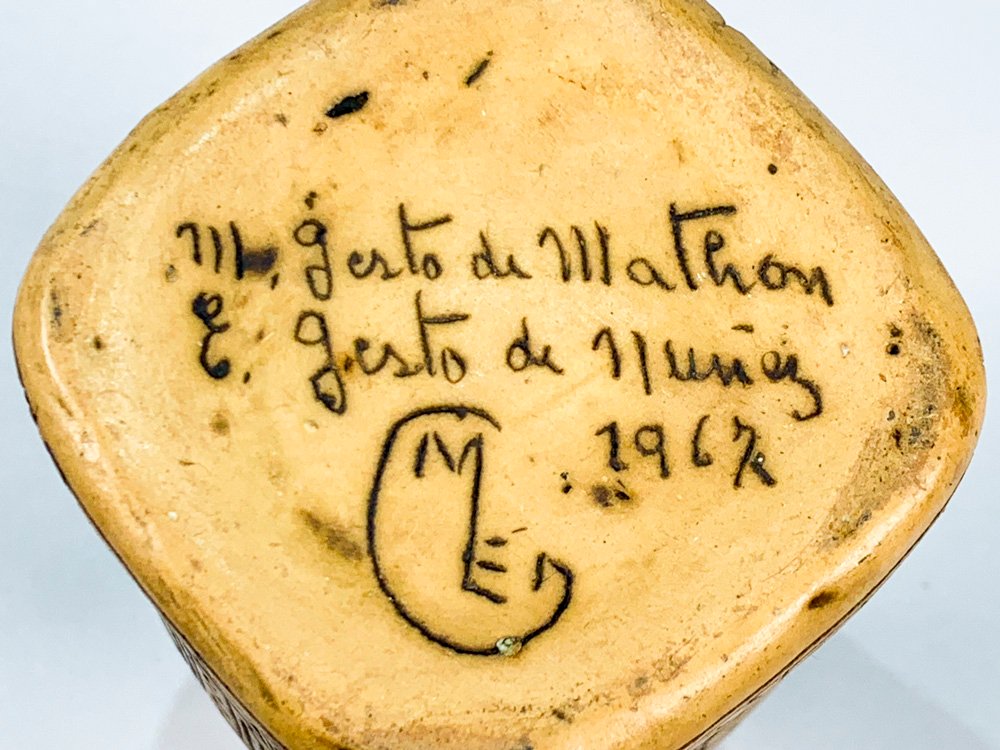 M. Gesto de Mathon
E. Gesto de Nuñez
1967
M
E n